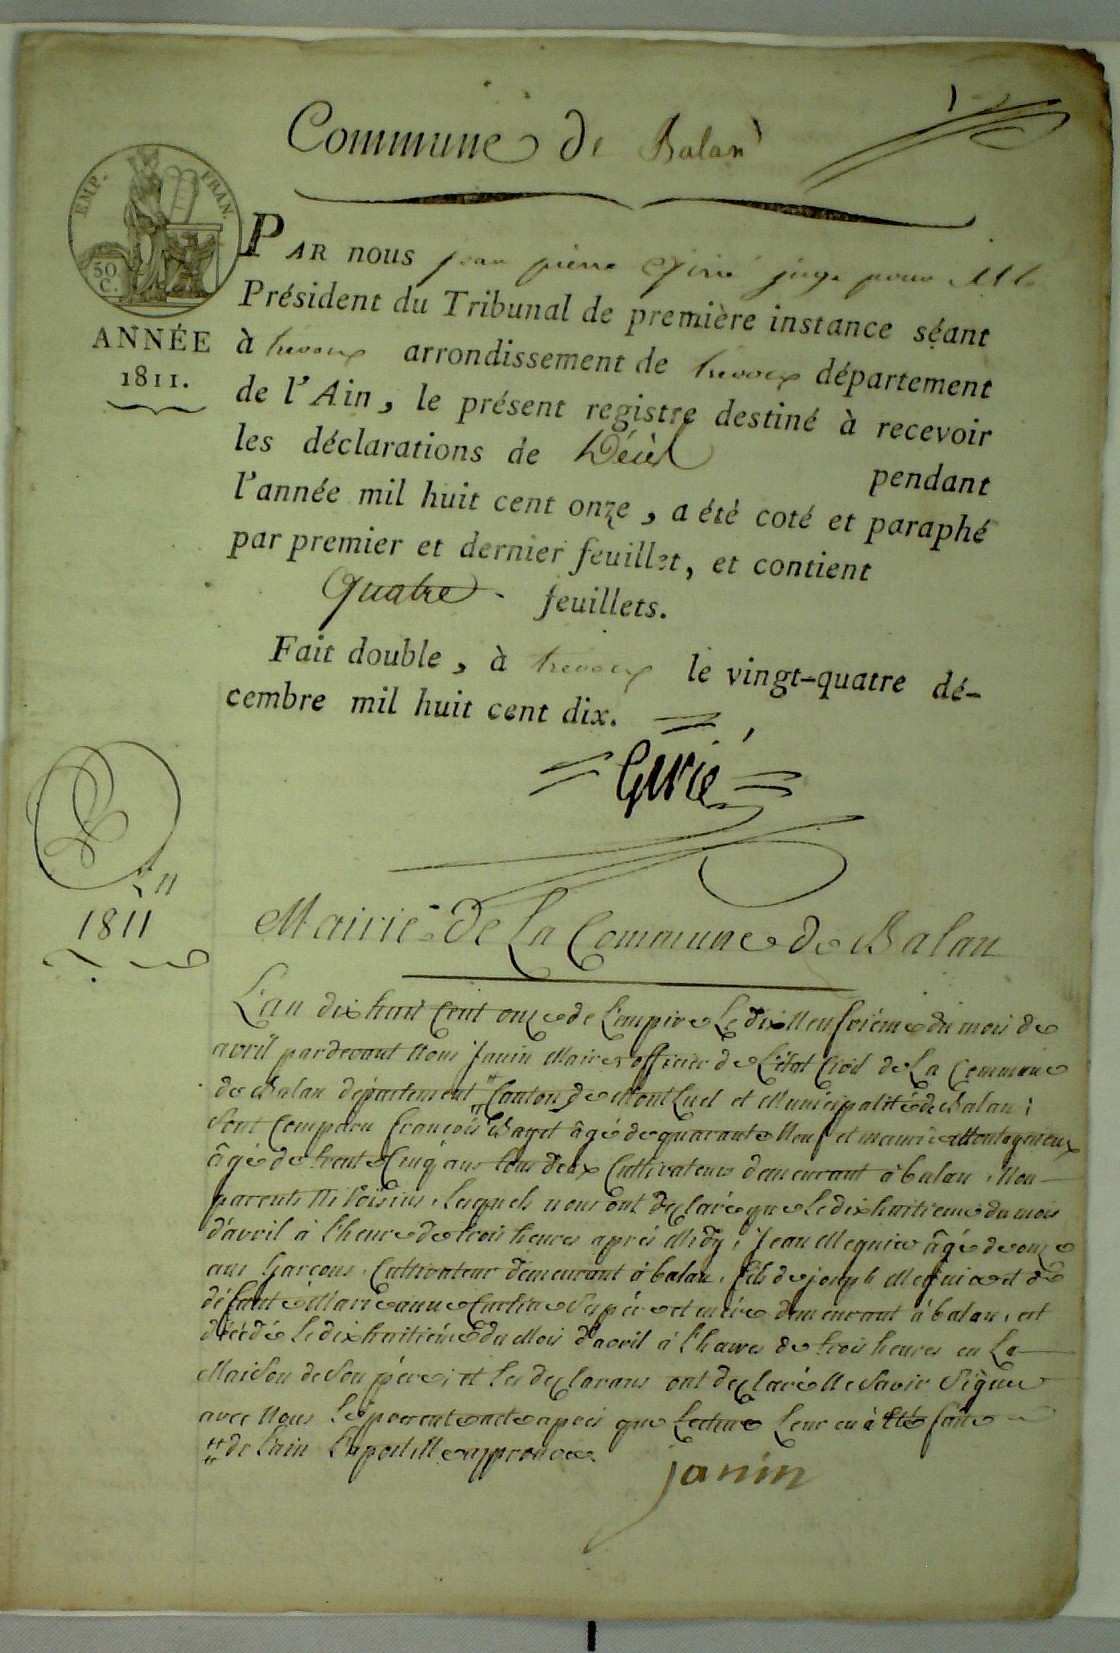 Commune de Balan
EMP. FRAN.
50 C.
ANNÉE
1811.
PAR nous jean pierre Girié juge pour M. le
Président du Tribunal de première instance séant
à trevoux arrondissement de trevoux département
de l'Ain, le présent registre destiné à recevoir
les déclarations de Décès pendant
l'année mil huit cent onze, a été coté et paraphé
par premier et dernier feuillet, et contient
Quatre feuillets.
Fait double, à trevoux le vingt-quatre dé-
cembre mil huit cent dix.
Girié
1811
Mairie de La Commune de Balan
L'an dix huit Cent onze de L'empire Le dix Neufvième du mois de
avril pardevant Nous Janin Maire officier de L'état Civil de La Commune
de Balan département " Canton de Montluel et Municipalité de Balan ;
Sont Comparu françois Baget âgé de quarante Neuf et maurice Montagnieux
âgé de trente Cinq ans tous deux Cultivateurs demeurant à balan Non
parents Ni Voisins, Lesquels nous ont declaré que Le dix huitieme du mois
d'avril à l'heure de trois heures après Midy, Jean Mequie âgé de onze
ans Garçons, Cultivateur demeurant à balan, fils de joseph Mequie et de
défunte Marie anne Son père et mère demeurant à balan, est
décédé Le dix huitième du Mois d'avril à l'heures de trois heures en La
Maison de Son père ; et Les declarans ont declaré Ne Savoir Signer
avec Nous Le present acte après que Lecture Leur en à été faite
" de l'ain L'apostille approuvée.
janin